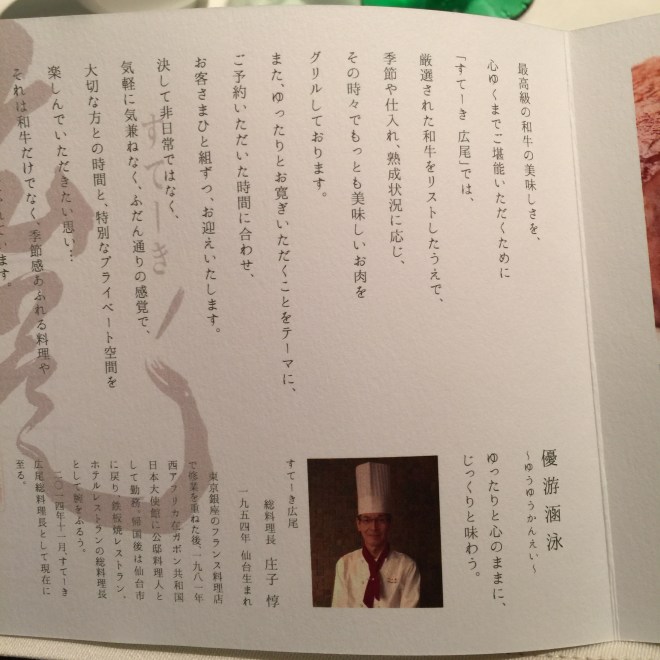 優游涵泳
~ゆうゆうかんえい~
ゆったりと心のままに、
じっくりと味わう。
最高級の和牛の美味しさを、
心ゆくまでご堪能いただくために
「すてーき 広尾」では、
厳選された和牛をリストしたうえで、
季節や仕入れ、熟成状況に応じ、
その時々でもっとも美味しいお肉を
グリルしております。
また、ゆったりとお寛ぎいただくことをテーマに、
ご予約いただいた時間に合わせ、
お客さまひと組ずつ、お迎えいたします。
決して非日常ではなく、
気軽に気兼ねなく、ふだん通りの感覚で、
大切な方との時間と、特別なプライベート空間を
楽しんでいただきたい思い…
それは和牛だけでなく、季節感あふれる料理や
ます。
すてーき
すてーき広尾
総料理長 庄子 惇
一九五四年 仙台生まれ
東京銀座のフランス料理店
で修業を重ねた後、一九八一年
西アフリカ在ガボン共和国
日本大使館に公邸料理人と
して勤務。帰国後は仙台市
に戻り、鉄板焼レストラン、
ホテルレストランの総料理長
として腕をふるう。
二〇一四年十一月、すてーき
広尾総料理長として現在に
至る。